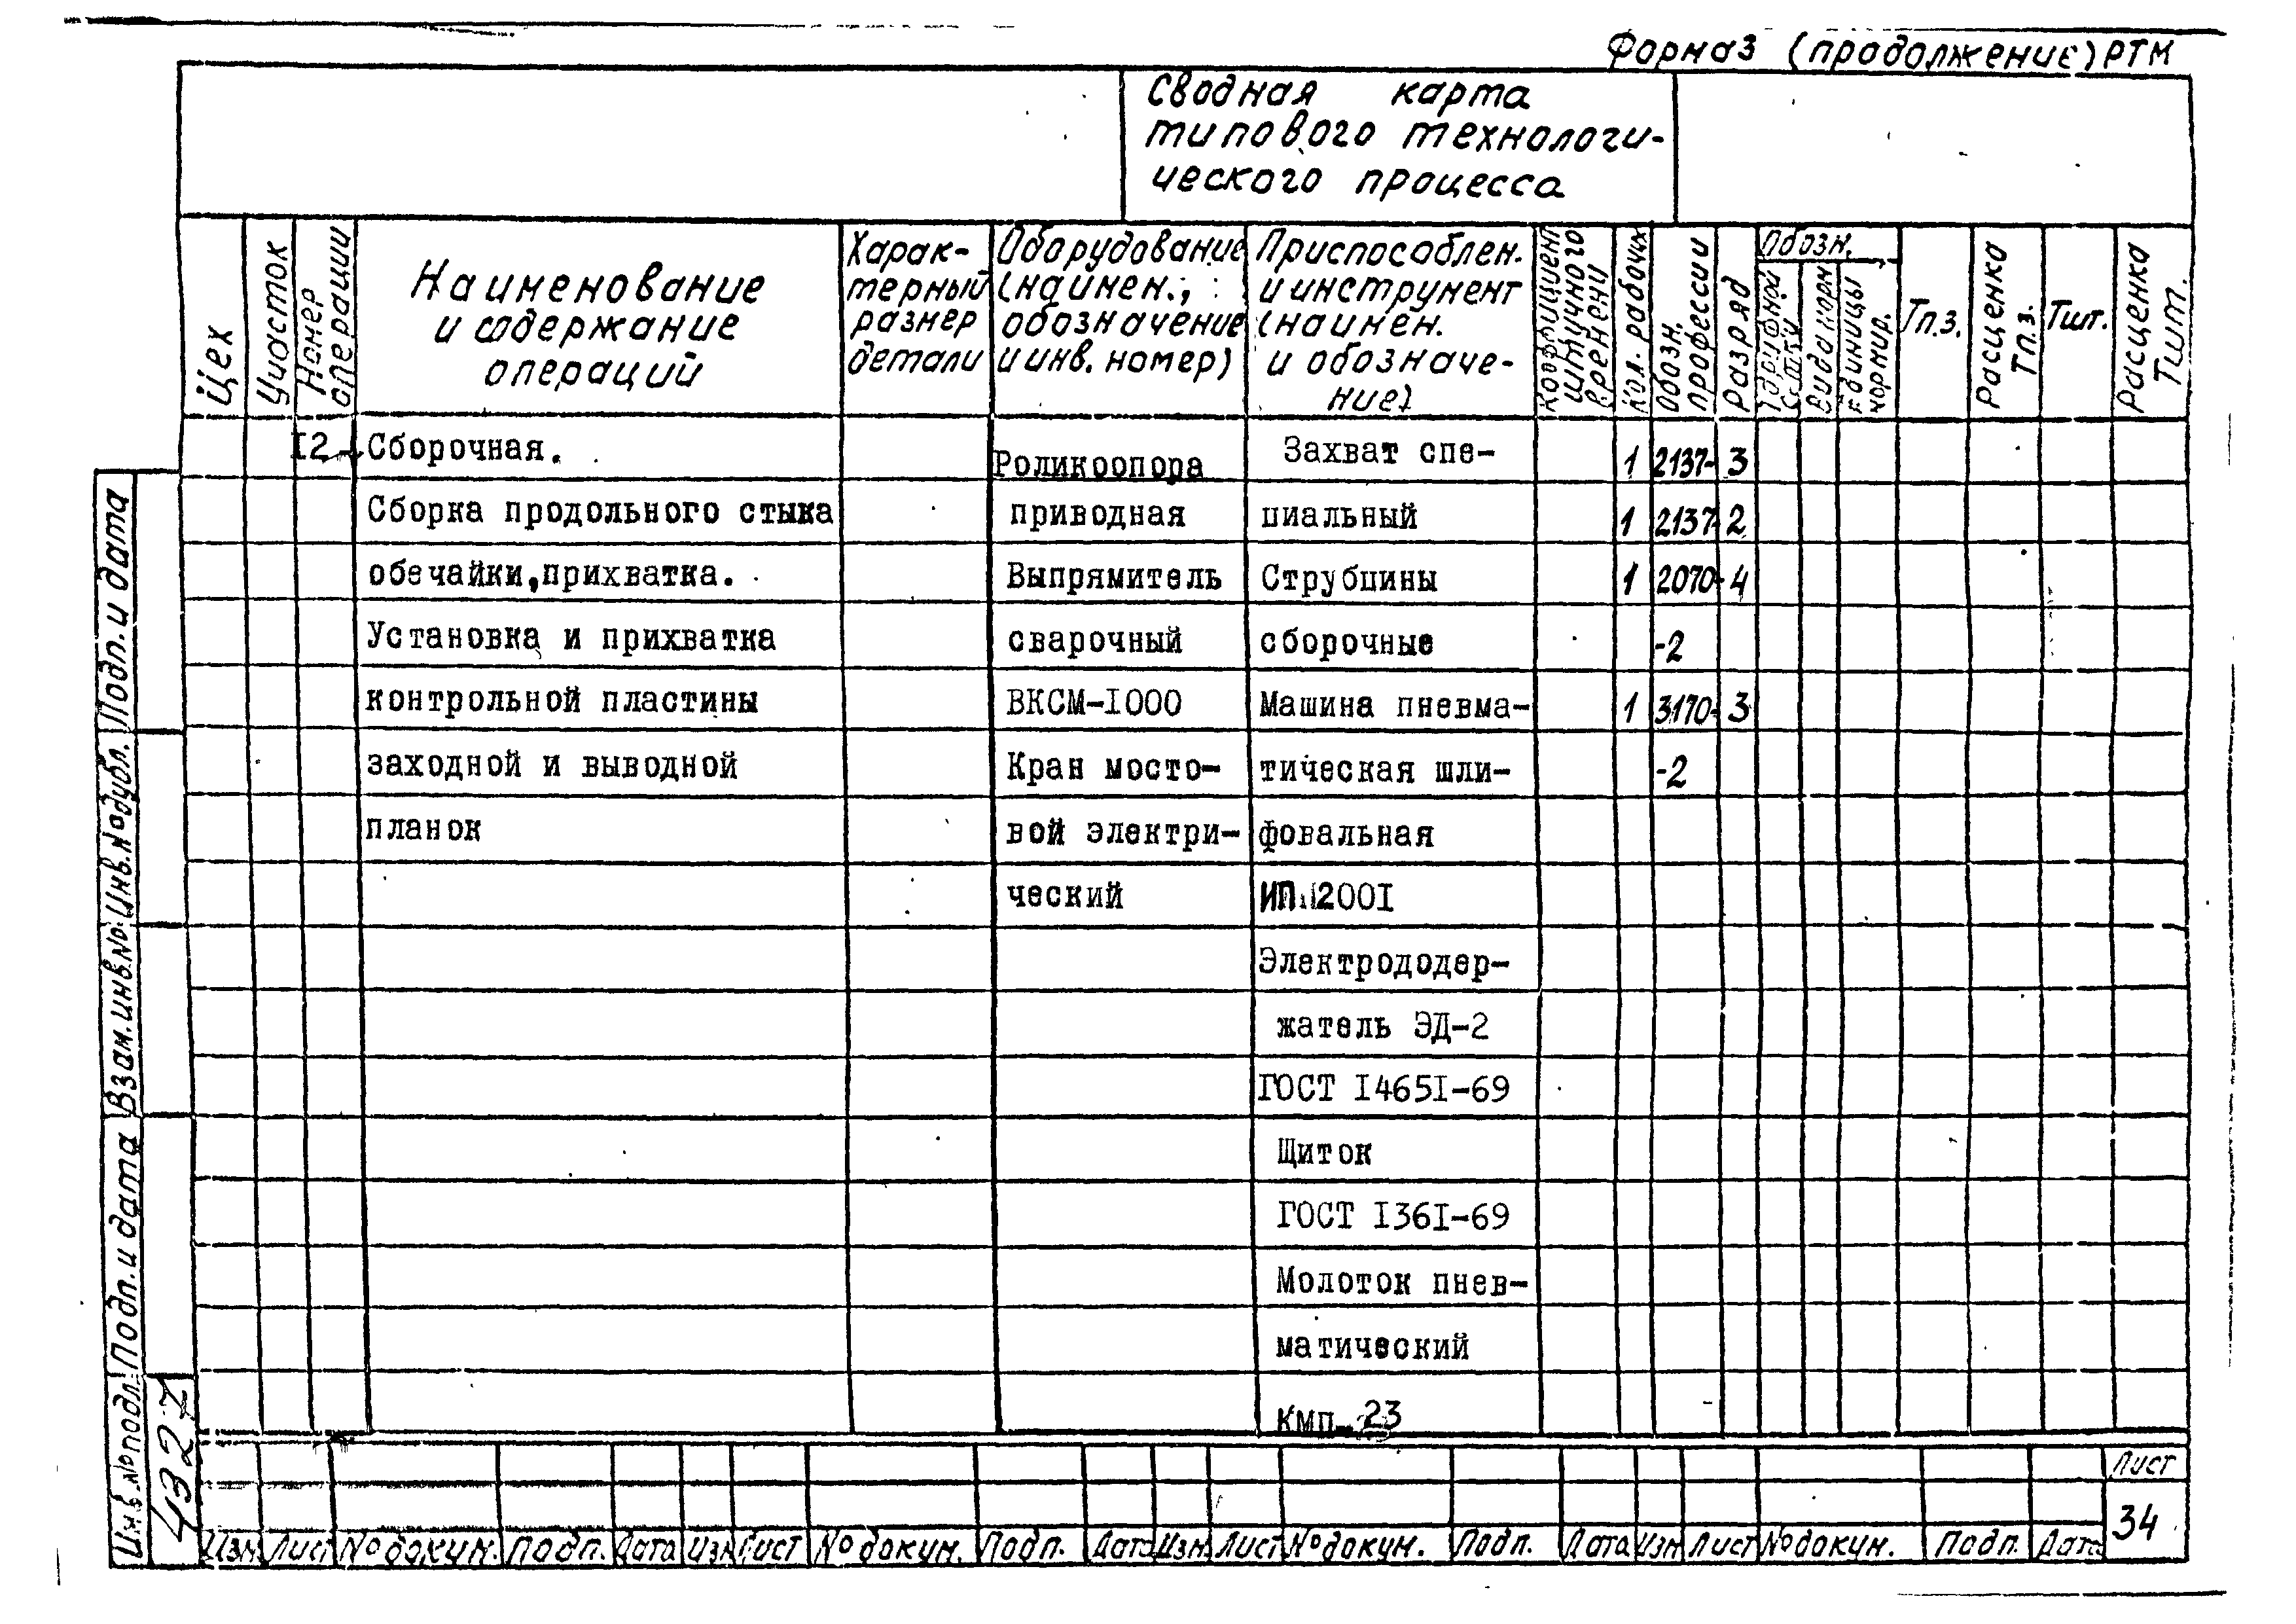 Форма3 (продолжение) РТМ
Сводная карта
типового технологи-
ческого процесса
Цех
Участок
Номер
операции
Наименование
и содержание
операций
Харак-
терный
размер
детали
Оборудование
(наимен.,
обозначение
и инв. номер)
Приспособлен.
и инструмент
(наимен.
и обозначе-
ние)
Коэффициент
штучного
времени
Кол. рабочих
Обозн.
профессии
Разряд
Обозн.
Тарифной
сетки
Вида норм
Единицы
нормир.
Тп.з.
Расценка
Тп.з.
Тшт.
Расценка
Тшт.
12 Сборочная. Роликоопора Захват спе- 1 2137- 3
Сборка продольного стыка приводная циальный 1 2137- 2
обечайки,прихватка. Выпрямитель Струбцины 1 2070- 4
Установка и прихватка сварочный сборочные -2
контрольной пластины ВКСМ-1000 Машина пневма- 1 3170- 3
заходной и выводной Кран мосто- тическая шли- -2
планок вой электри- фовальная
ческий ИП 2001
Электрододер-
жатель ЭД-2
ГОСТ 14651-69
Щиток
ГОСТ 1361-69
Молоток пнев-
матический
КМП-23
Подп. и дата
Инв. №дубл.
Взам. инв. №
Подп. и дата
Инв. №подл.
4327
Изм Лист №докум. Подп. Дата Изм Лист №докум. Подп. Дата Изм. Лист №докум. Подп. Дата Изм Лист №докум. Подп. Дата
Лист
34